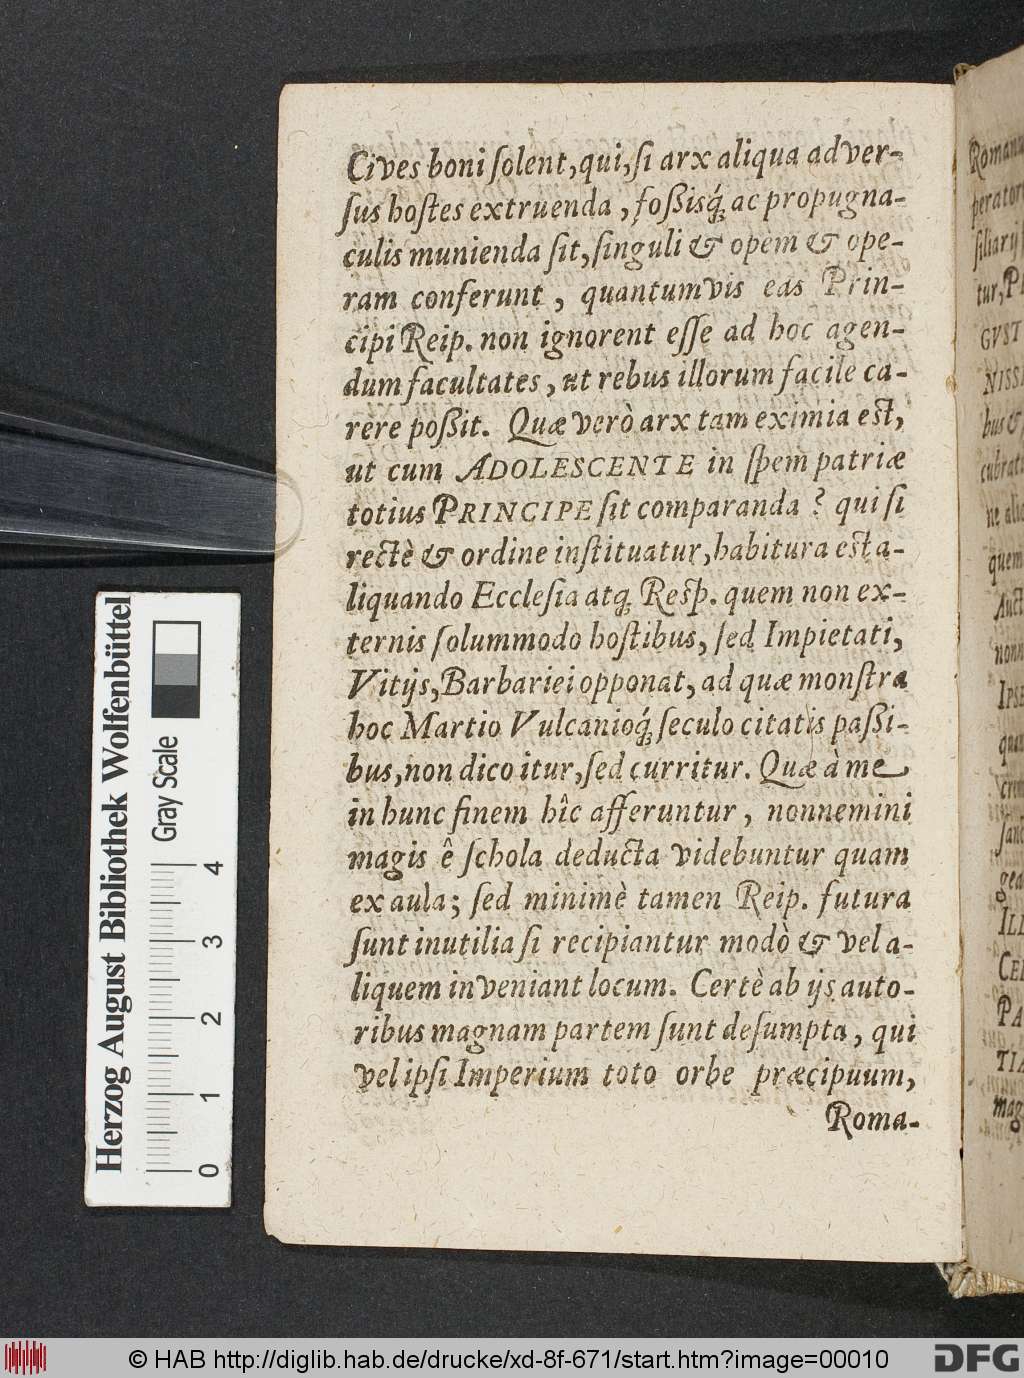 Cives boni ſolent, qui, ſi arx aliqua adver-
ſus hoſtes extruenda, foßisq́; ac propugna-
culis munienda ſit, ſinguli & opem & ope-
ram conferunt, quantumvis eas Prin-
cipi Reip. non ignorent eſſe ad hoc agen-
dum facultates, ut rebus illorum facile ca-
rere poßit. Quæ verò arx tam eximia eſt,
ut cum ADOLESCENTE in ſpem patriæ
totius PRINCIPE ſit comparanda? qui ſi
rectè & ordine inſtituatur, habitura eſt a-
liquando Eccleſia atq; Reſp. quem non ex-
ternis ſolummodo hoſtibus, ſed Impietati,
Vitijs, Barbariei opponat, ad quæ monſtra
hoc Martio Vulcanioq́; ſeculo citatis paßi-
bus, non dico itur, ſed curritur. Quæ à me
in hunc finem hîc afferuntur, nonnemini
magis ê ſchola deducta videbuntur quam
ex aula; ſed minimè tamen Reip. futura
ſunt inutilia ſi recipiantur modò & vel a-
liquem inveniant locum. Certè ab ijs auto-
ribus magnam partem ſunt deſumpta, qui
vel ipſi Imperium toto orbe præcipuum,
Roma-
Romanu
perator
ſiliarij
tur, P
GVST
NISSI
bus &
cubrati
ne alio
quem
Auct
nonn
IPSE
quan
ILL
CEL
PA
TIA
mag
Herzog August Bibliothek Wolfenbüttel
Gray Scale
0 1 2 3 4
© HAB http://diglib.hab.de/drucke/xd-8f-671/start.htm?image=00010
DFG